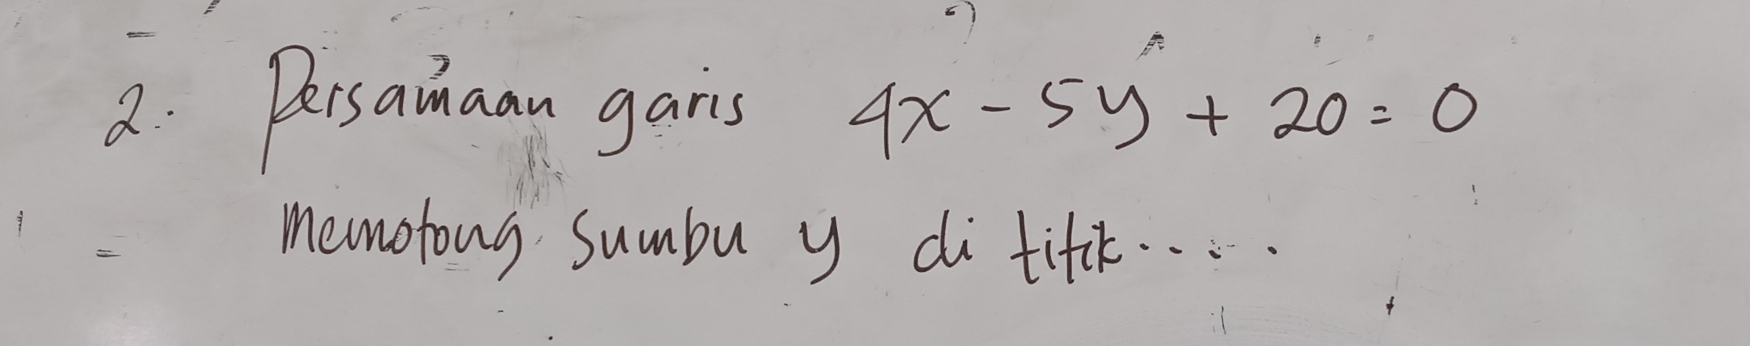 2. Persamaan garis 4x - 5y + 20 = 0
memotong sumbu y di titik.....